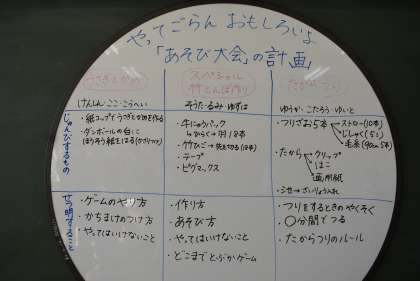 やってごらん おもしろいよ
「あそび大会」の計画
うさぎとかめ
スペシャル
竹とんぼ作り
たからつり
けんしん ここ こうへい
そうた なるみ ゆずは
ゆうが こたろう ゆいと
じゅんびするもの
・紙コップでうさぎとかめを作る
・ダンボールの白に
・牛にゅうパック
・竹ひご
・テープ
・ビグマックス
・つりざお5本
ストロー(10本)
じしゃく(5こ)
毛糸(90cm 5本)
・たから
クリップ
はこ
画用紙
せつ明すること
・ゲームのやり方
・かちまけのつけ方
・やってはいけないこと
・作り方
・あそび方
・やってはいけないこと
・どこまでとぶかゲーム
・つりをするときのやくそく
・〇分間でつる
・たからつりのルール